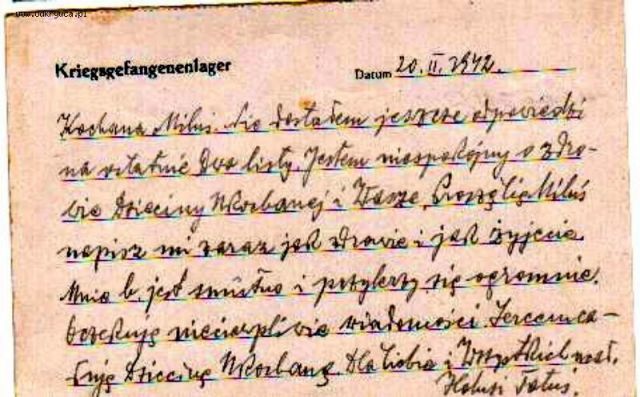 www.odkrywca.pl
Kriegsgefangenenlager
Datum 20. II. 1942.
Kochana Miluś. Nie dostałem jeszcze odpowiedzi
na ostatnie dwa listy. Jestem niespokojny o zdro-
wie Dzieciny Ukochanej i Wasze. Proszę Cię Miluś
napisz mi zaraz jak zdrowie i jak żyjecie.
Mnie b. jest smutno i przykrzy się ogromnie.
Oczekuję niecierpliwie wiadomości. Serce
Dziecinę Ukochaną. Dla Ciebie i Wszystkich
Tatuś.